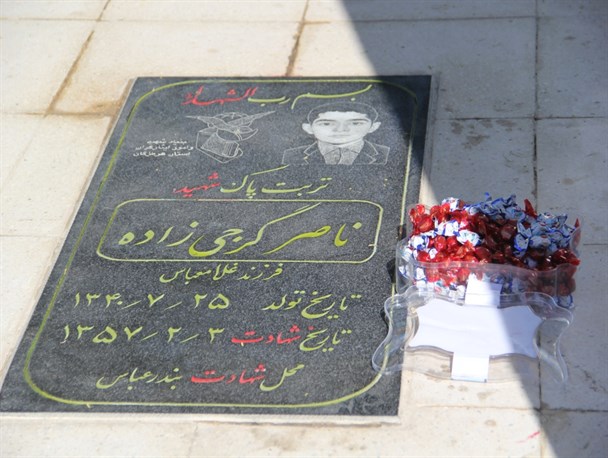 بسم رب الشهدا
بنیاد شهید
و امور ایثارگران
استان هرمزگان
تربت پاک شهید:
ناصر گرجی زاده
فرزند غلامعباس
تاریخ تولد ۱۳۴۰/۷/۲۵
تاریخ شهادت ۱۳۵۷/۲/۳
محل شهادت بندرعباس